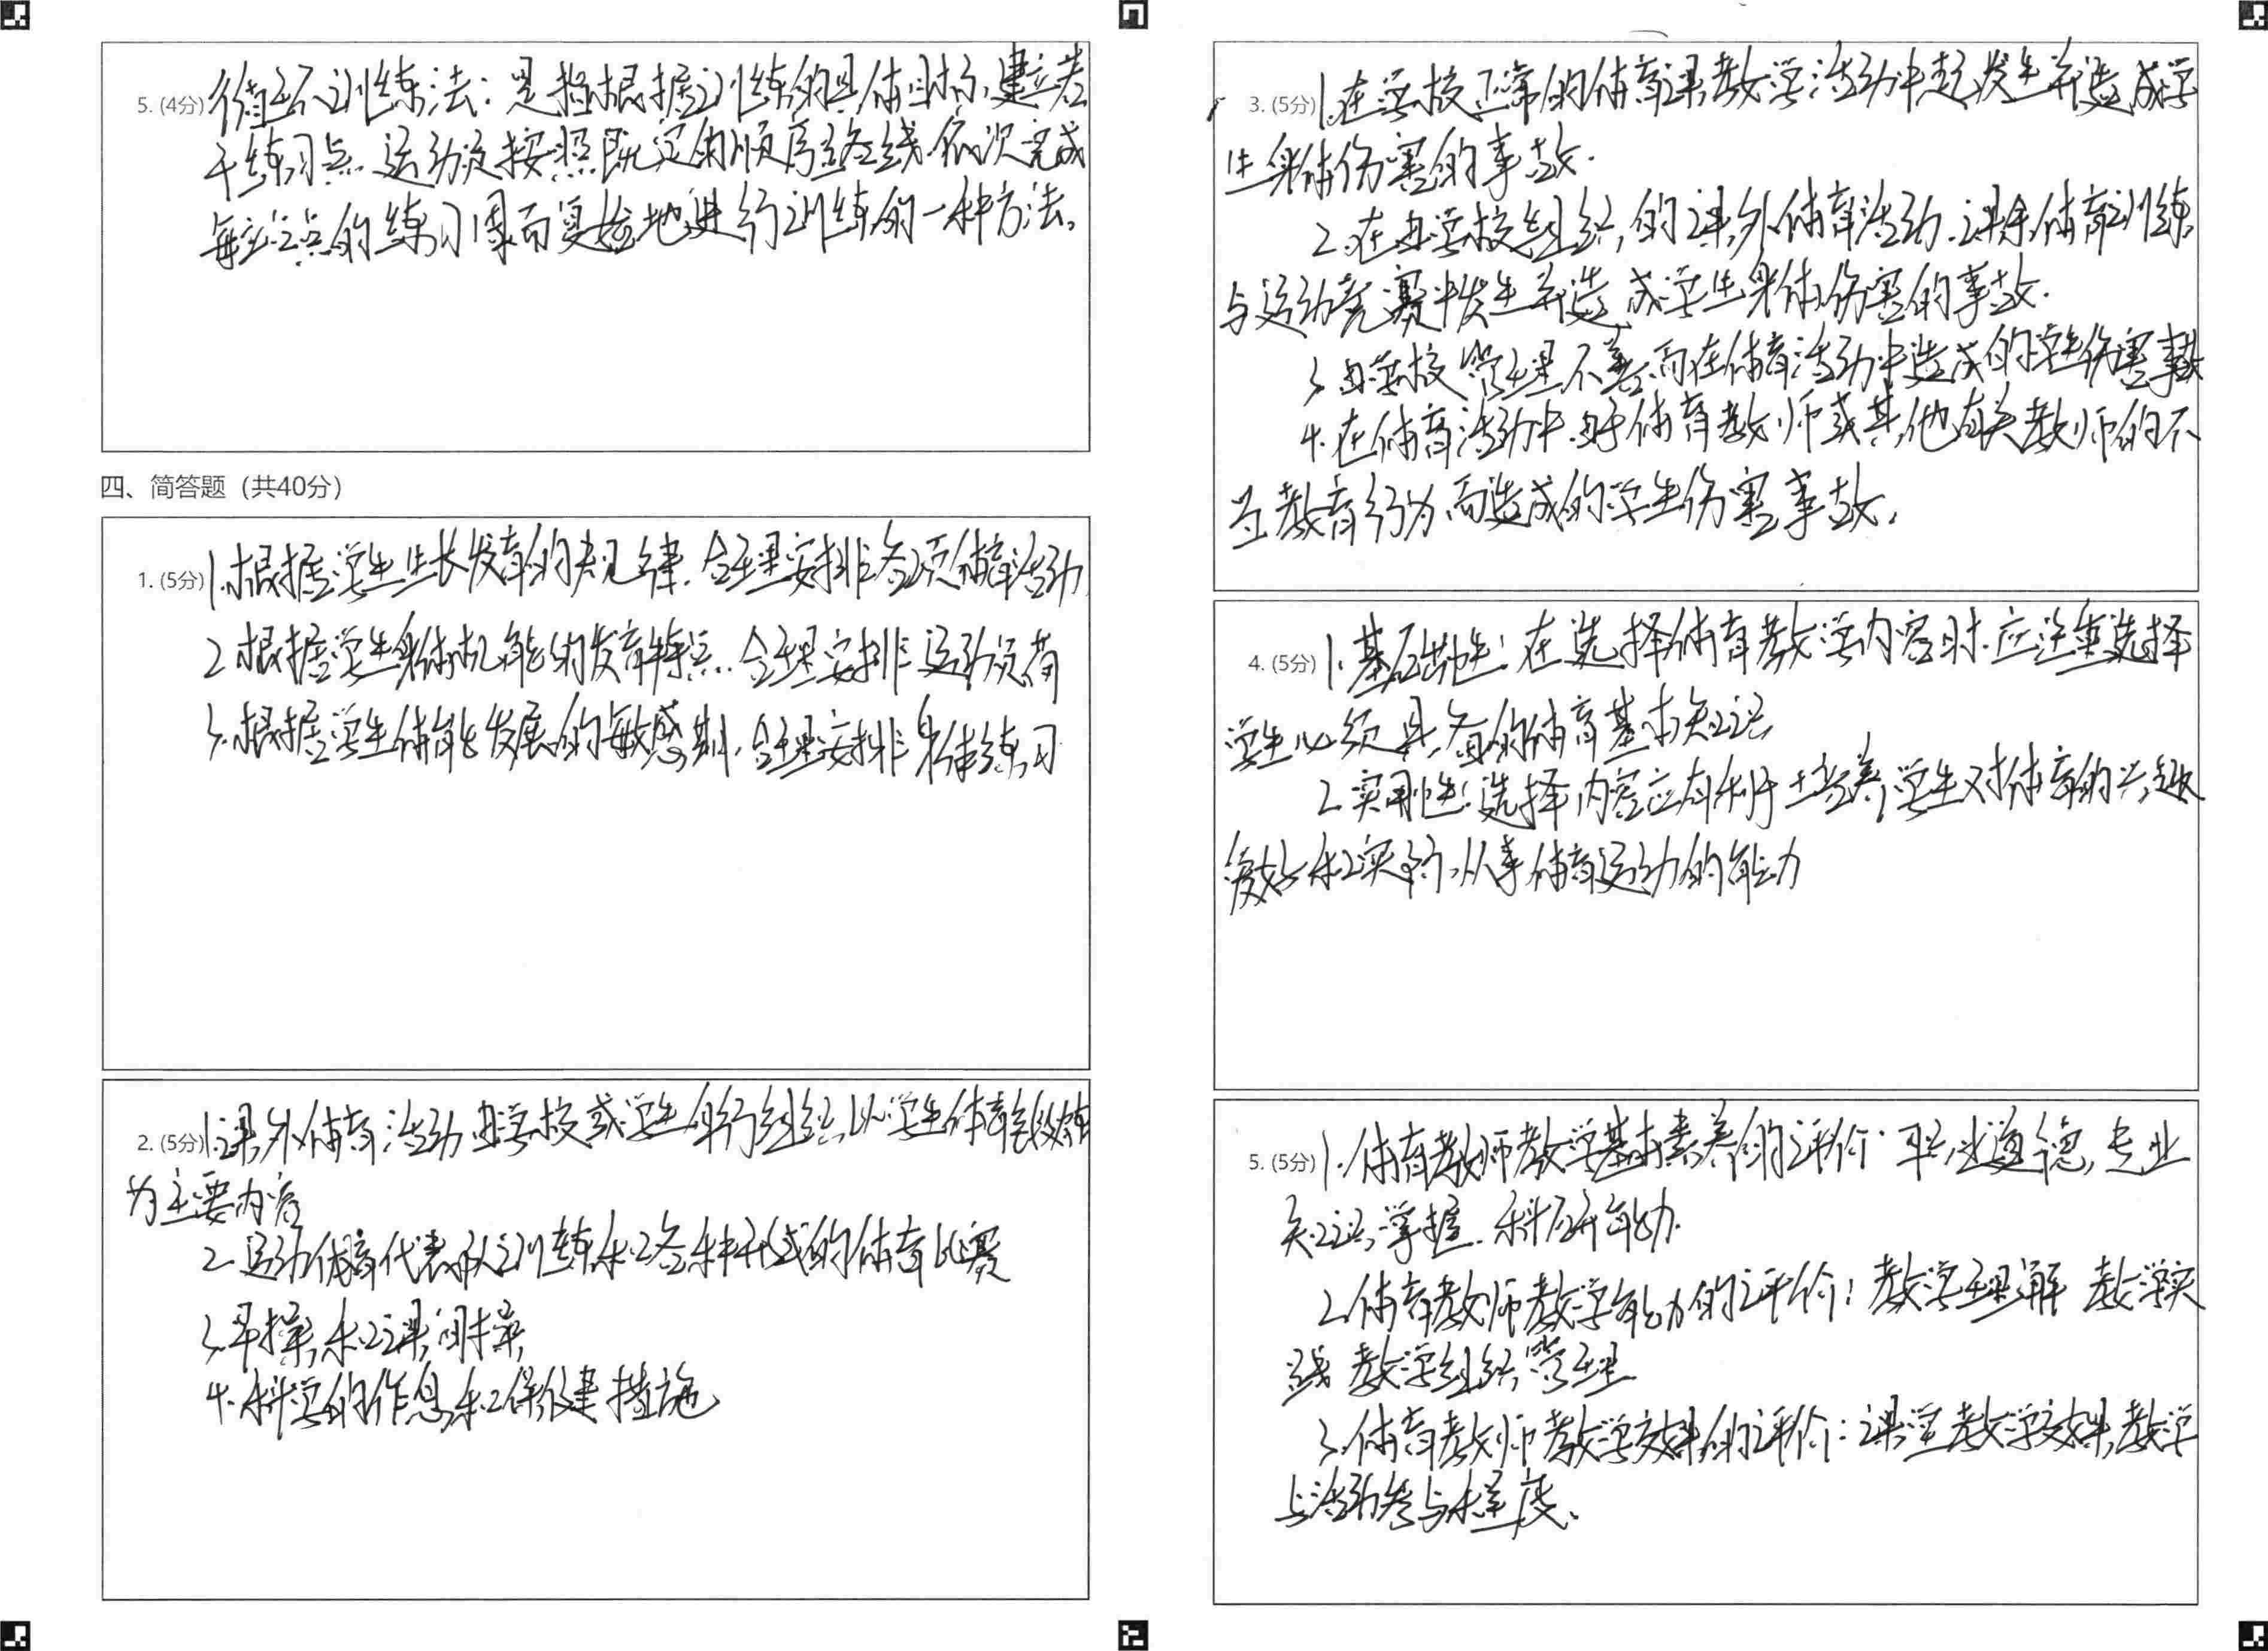 5. (4分) 循环训练法：是指根据训练的具体目标、建立若
干练习点.运动员按照既定的顺序路线.依次完成
每站点的练习周而复始地进行训练的一种方法。
四、简答题（共40分）
1. (5分) 1.根据学生生长发育的规律.合理安排各项体育活动
2.根据学生身体机能的发育特点.合理安排运动负荷
3.根据学生体能发展的敏感期.合理安排身体练习
2. (5分) 1.课外体育活动由学校或学生自行组织,以学生体育锻炼
为主要内容
2.运动体育代表队训练和各种形式的体育比赛
3.早操和课间操
4.科学的作息和保健措施
3. (5分) 1.在学校正常的体育课教学活动中发生并造成学
生身体伤害的事故.
2.在由学校组织的课外体育活动.课余体育训练
与运动竞赛中发生并造成学生身体伤害的事故.
3.由学校管理不善而在体育活动中造成的学生伤害事故
4.在体育活动中.由于体育教师或其他有关教师的不
当教育行为而造成的学生伤害事故.
4. (5分) 1.基础性:在选择体育教学内容时.应注重选择
学生必须具备的体育基本知识
2.实用性:选择内容应有利于培养学生对体育的兴趣
爱好和实际从事体育运动的能力
5. (5分) 1.体育教师教学基本素养的评价:职业道德,专业
知识掌握.科研能力.
2.体育教师教学能力的评价:教学理解 教学实
践 教学组织管理
3.体育教师教学效果的评价:课堂教学效果,教学
与活动参与程度.